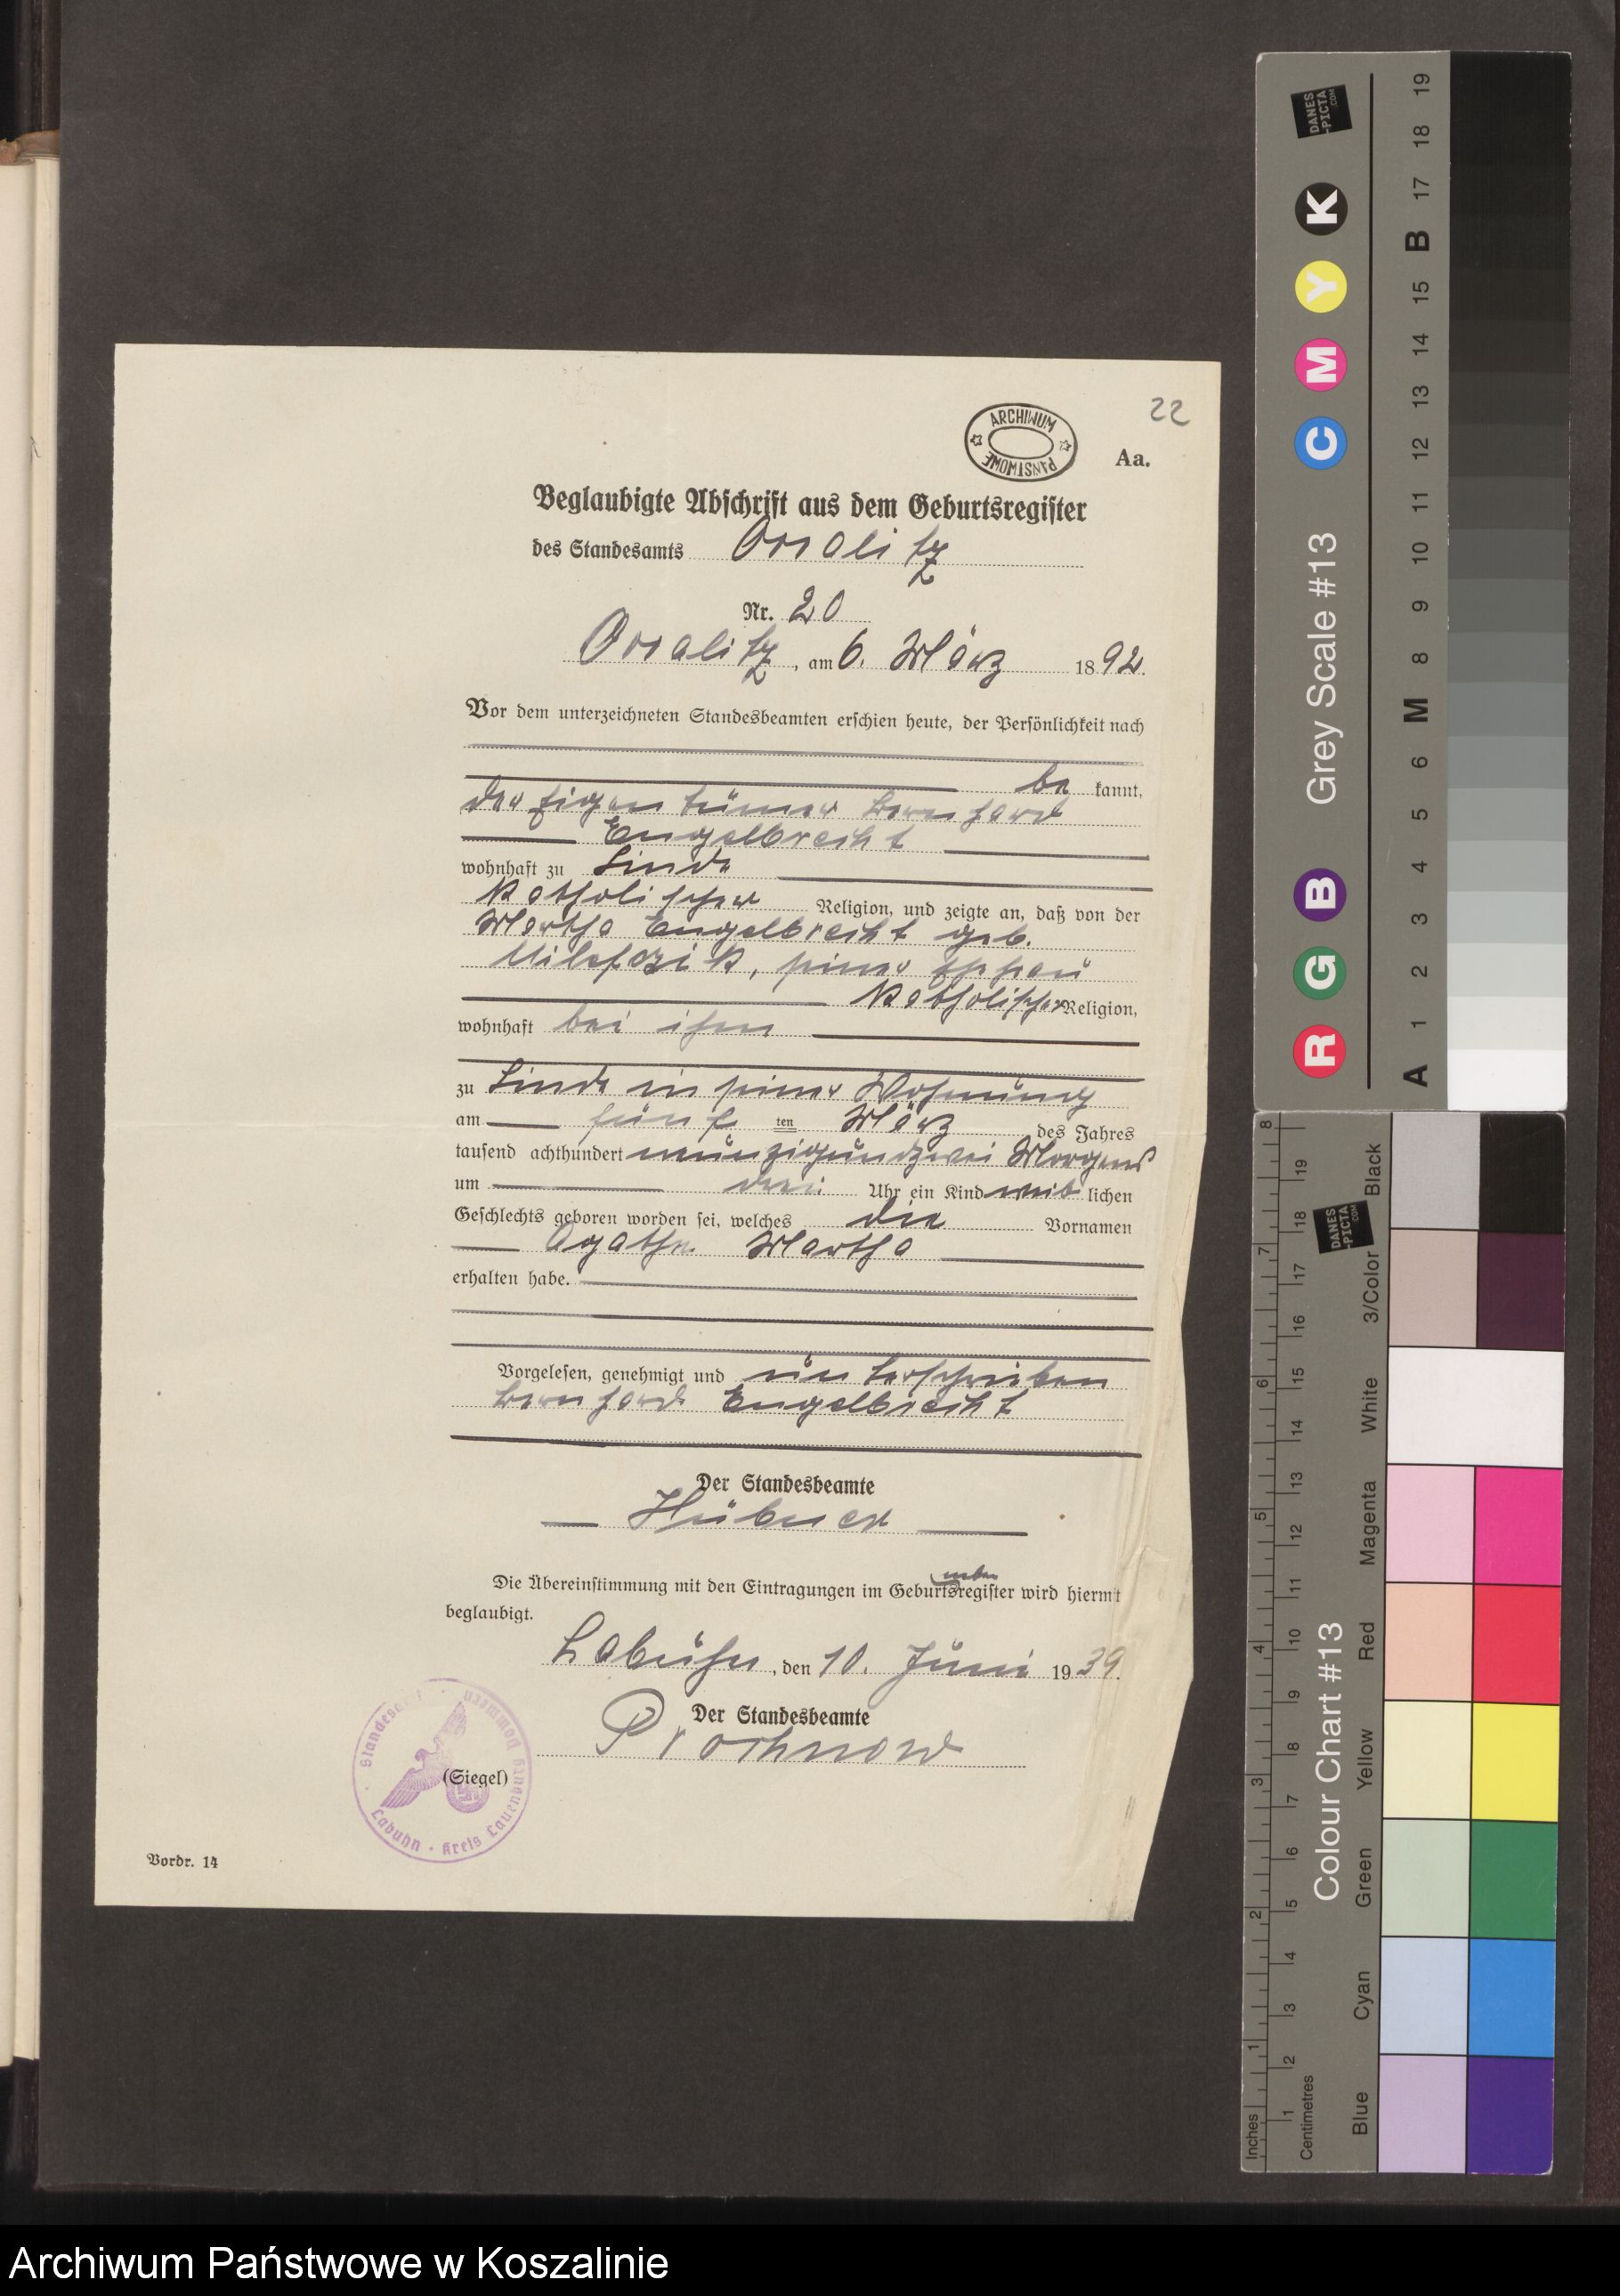 22
ARCHIWUM PAŃSTWOWE
Aa.
Beglaubigte Abschrift aus dem Geburtsregister
des Standesamts Ossalitz
Nr. 20
Ossalitz, am 6. März 1892.
Vor dem unterzeichneten Standesbeamten erschien heute, der Persönlichkeit nach
be kannt,
der Eigentümer Bernhard
Engelbrecht
wohnhaft zu Linde
Katholischer Religion, und zeigte an, daß von der
Martha Engelbrecht geb.
seiner Ehefrau
Katholischer Religion,
wohnhaft bei ihm
zu Linde in seiner Wohnung
am fünf ten März des Jahres
tausend achthundert neunzigundzwei Morgens
um drei Uhr ein Kind weib lichen
Geschlechts geboren worden sei, welches die Vornamen
Agathe Martha
erhalten habe.
Vorgelesen, genehmigt und unterschrieben
Bernhard Engelbrecht
Der Standesbeamte
Hübner
neben
Die Übereinstimmung mit den Eintragungen im Geburtsregister wird hiermit
beglaubigt.
Labuhn, den 10. Juni 1939.
Der Standesbeamte
Prochnow
(Siegel)
Labuhn · Kreis Lauenburg Pommern
Vordr. 14
DANES-PICTA.COM
Grey Scale #13
R G B M Y C K
A 1 2 3 4 5 6 M 8 9 10 11 12 13 14 15 B 17 18 19
Colour Chart #13
Blue Cyan Green Yellow Red Magenta White 3/Color Black
Inches 1 2 3 4 5 6 7 8
Centimetres 1 2 3 4 5 6 7 8 9 10 11 12 13 14 15 16 17 18 19
DANES-PICTA.COM
Archiwum Państwowe w Koszalinie